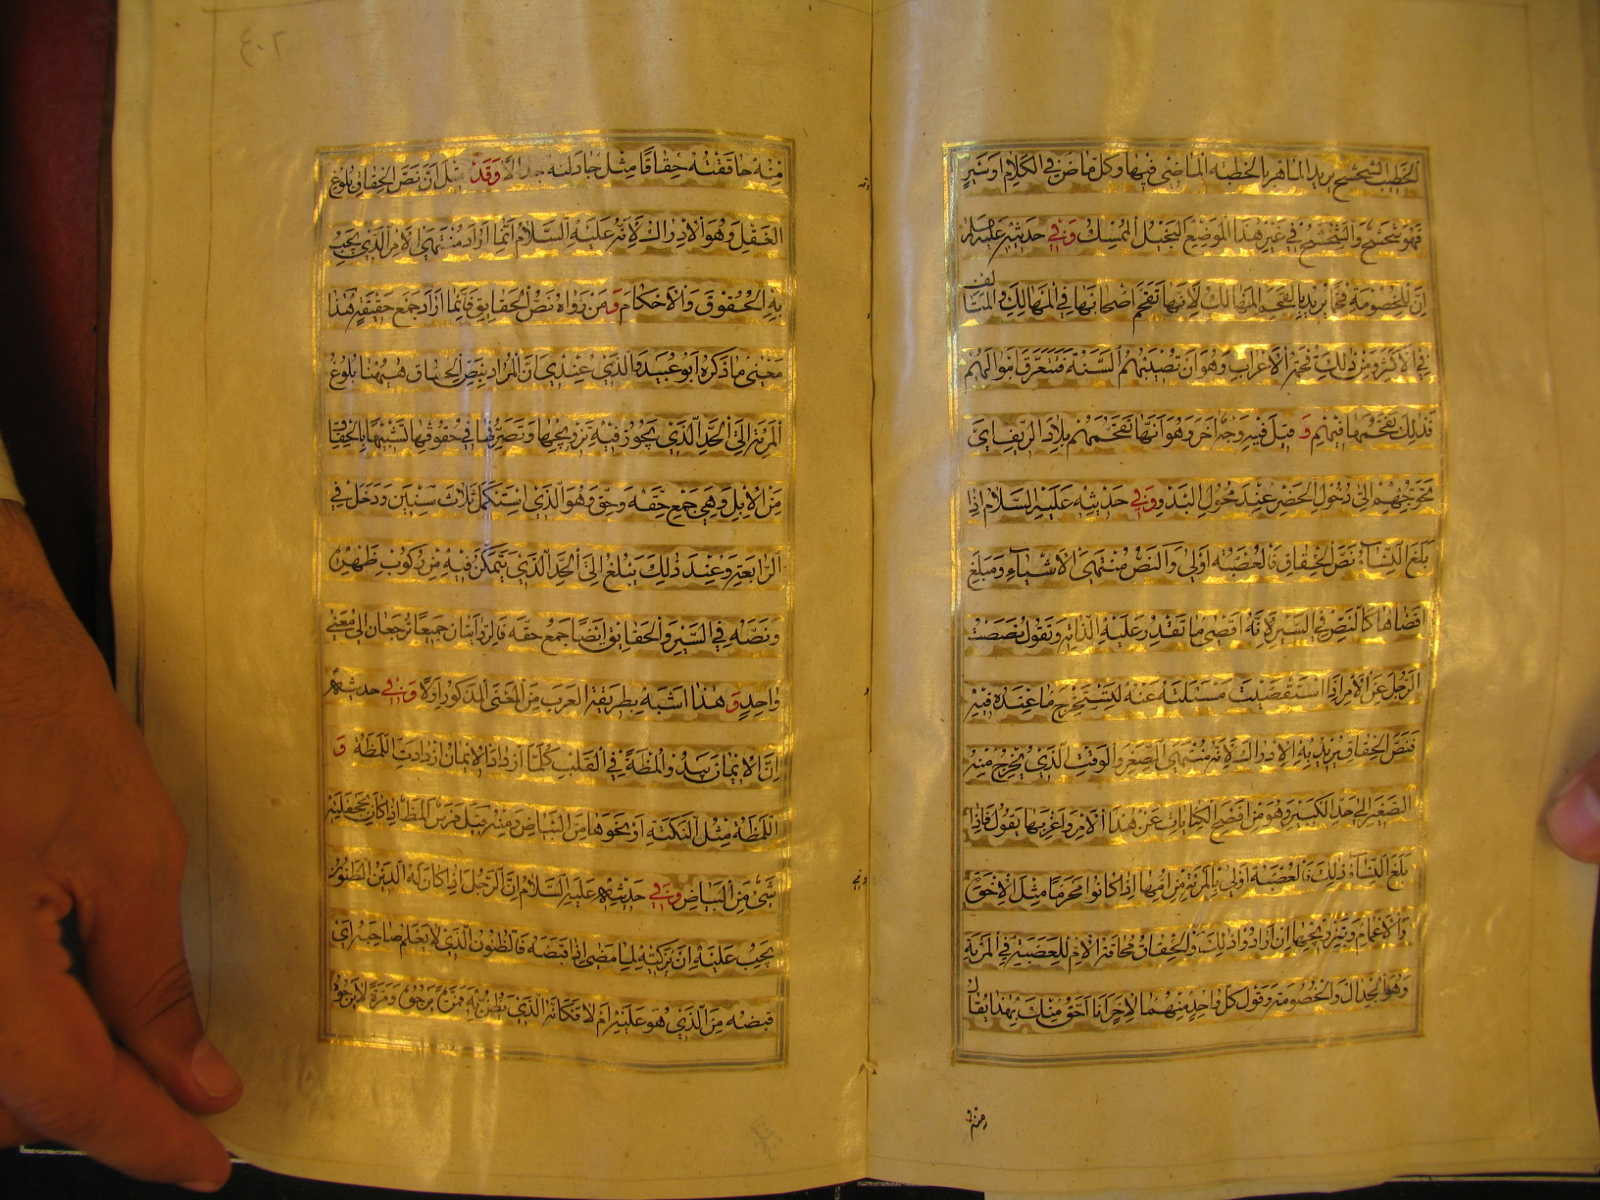 الخطيب الشحشح يريد الماهر بالخطبة الماضى فيها وكل ماض فى الكلام او سير
فهو شحشح والشحشح فى غير هذا الموضع البخيل الممسك وفى حديثه عليه السلام
ان للخصومة قحما يريد بالقحم المهالك لانها تقحم اصحابها فى المهالك والمتالف
فى الاكثر ومن ذلك قحمة الاعراب وهو ان تصيبهم السنة فتتعرق اموالهم
فذلك تقحمها فيهم و قيل فيه وجه اخر وهو انها تقحمهم بلاد الريف اى
تحوجهم الى دخول الحضر عند محول البدو وفى حديثه عليه السلام اذا
بلغ النساء نص الحقاق فالعصبة اولى والنص منتهى الاشياء ومبلغ
اقصاها كالنص فى السير لانه اقصى ما تقدر عليه الدابة وتقول نصصت
الرجل عن الامر اذا استقصيت مسئلته عنه لتستخرج ما عنده فيه
فنص الحقاق يريد به الادراك لانه منتهى الصغر والوقت الذى يخرج منه
الصغير الى حد الكبير وهو من افصح الكنايات عن هذا الامر واغربها يقول فاذا
بلغ النساء ذلك فالعصبة اولى بالمرءة من امها اذا كانوا محرما مثل الاخوة
والاعمام وبتزويجها ان ارادوا ذلك والحقاق محاقة الام للعصبة فى المرءة
وهو الجدال والخصومة وقول كل واحد منهما للاخر انا احق منك بهذا يقال
منه
منه حاققته حقاقا مثل جادلته جدالا وقد قيل ان نص الحقاق بلوغ
العقل وهو الادراك لانه عليه السلام انما اراد منتهى الامر الذى يجب
به الحقوق والاحكام ومن رواه نص الحقايق فانما اراد جمع حقيقة هذا
معنى ما ذكره ابو عبيد والذى عندى ان المراد بنص الحقاق ههنا بلوغ
المرءة الى الحد الذى يجوز فيه تزويجها وتصرفها فى حقوقها تشبيها بالحقاق
من الابل وهى جمع حقه وحق وهو الذى استكمل ثلاث سنين ودخل فى
الرابعة وعند ذلك يبلغ الى الحد الذى يتمكن فيه من ركوب ظهره
ونصه فى السير والحقايق ايضا جمع حقه فالروايتان جميعا ترجعان الى معنى
واحد و هذا اشبه بطريقة العرب من المعنى المذكور اولا وفى حديثه
ان الايمان يبدو لمظة فى القلب كلما ازداد الايمان ازدادت اللمظة و
اللمظة مثل النكتة او نحوها من البياض ومنه قيل فرس المظ اذا كان بجحفلته
شىء من البياض وفى حديثه عليه السلام ان الرجل اذا كان له الدين الظنون
يجب عليه ان يزكيه لما مضى اذا قبضه فالظنون الذى لا يعلم صاحبه اى
قبضه من الذى هو عليه ام لا فكانه الذى يظن به فمرة يرجوه ومرة لا يرجوه
٤٠٢